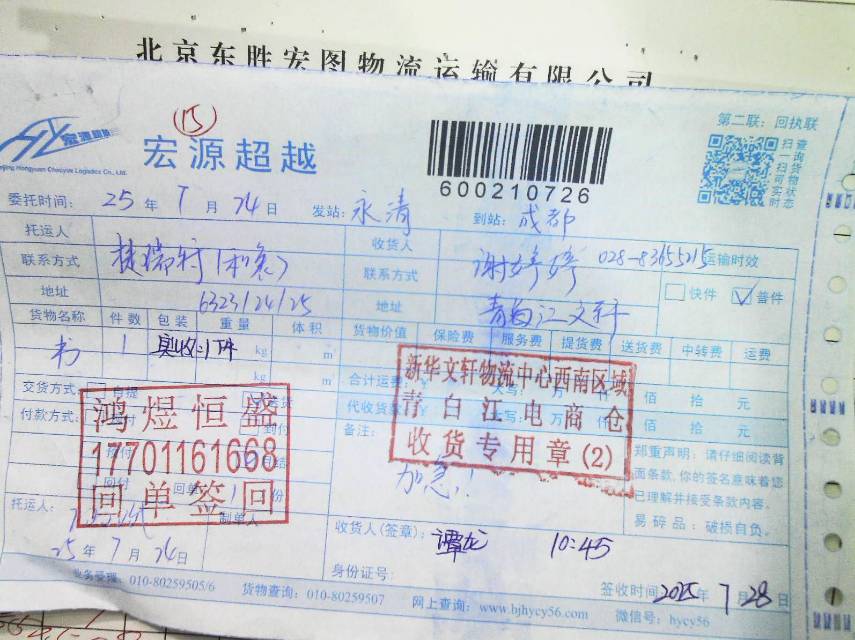 北京东胜宏图物流运输有限公司
第二联：回执联
宏源超越
Beijing Hongyuan Chaoyue Logistics Co., Ltd.
宏源超越
15
600210726
扫一扫 查询货物实时状态
委托时间：25年7月24日 发站：永清 到站：成都
托运人 收货人 谢婷婷 028-83655215 运输时效
联系方式 捷瑞轩 联系方式
快件 普件
地址 6323/24/25 地址 青白江文轩
货物名称 件数 包装 重量 体积 货物价值 保险费 服务费 提货费 送货费 中转费 运费
书 1 实收:1件 kg m
kg m 合计运费：¥ 大写： 万 仟 佰 拾 元
交货方式： 自提 送货 代收货款：¥ 大写： 万 仟 佰 拾 元
付款方式： 到付 备注：
月结
回付 回单 1 份 加急！
鸿煜恒盛
17701161668
回单签回
新华文轩物流中心西南区域
青白江电商仓
收货专用章(2)
郑重声明：请仔细阅读背面条款，你的签名意味着您已理解并接受条款内容。
易碎品：破损自负。
托运人： 制单人
收货人(签章)： 谭龙 10:45
25年7月24日 身份证号： 签收时间 2025年7月28日
业务受理：010-80259505/6 货物查询：010-80259507 网上查询：www.bjhycy56.com 微信号：hycy56